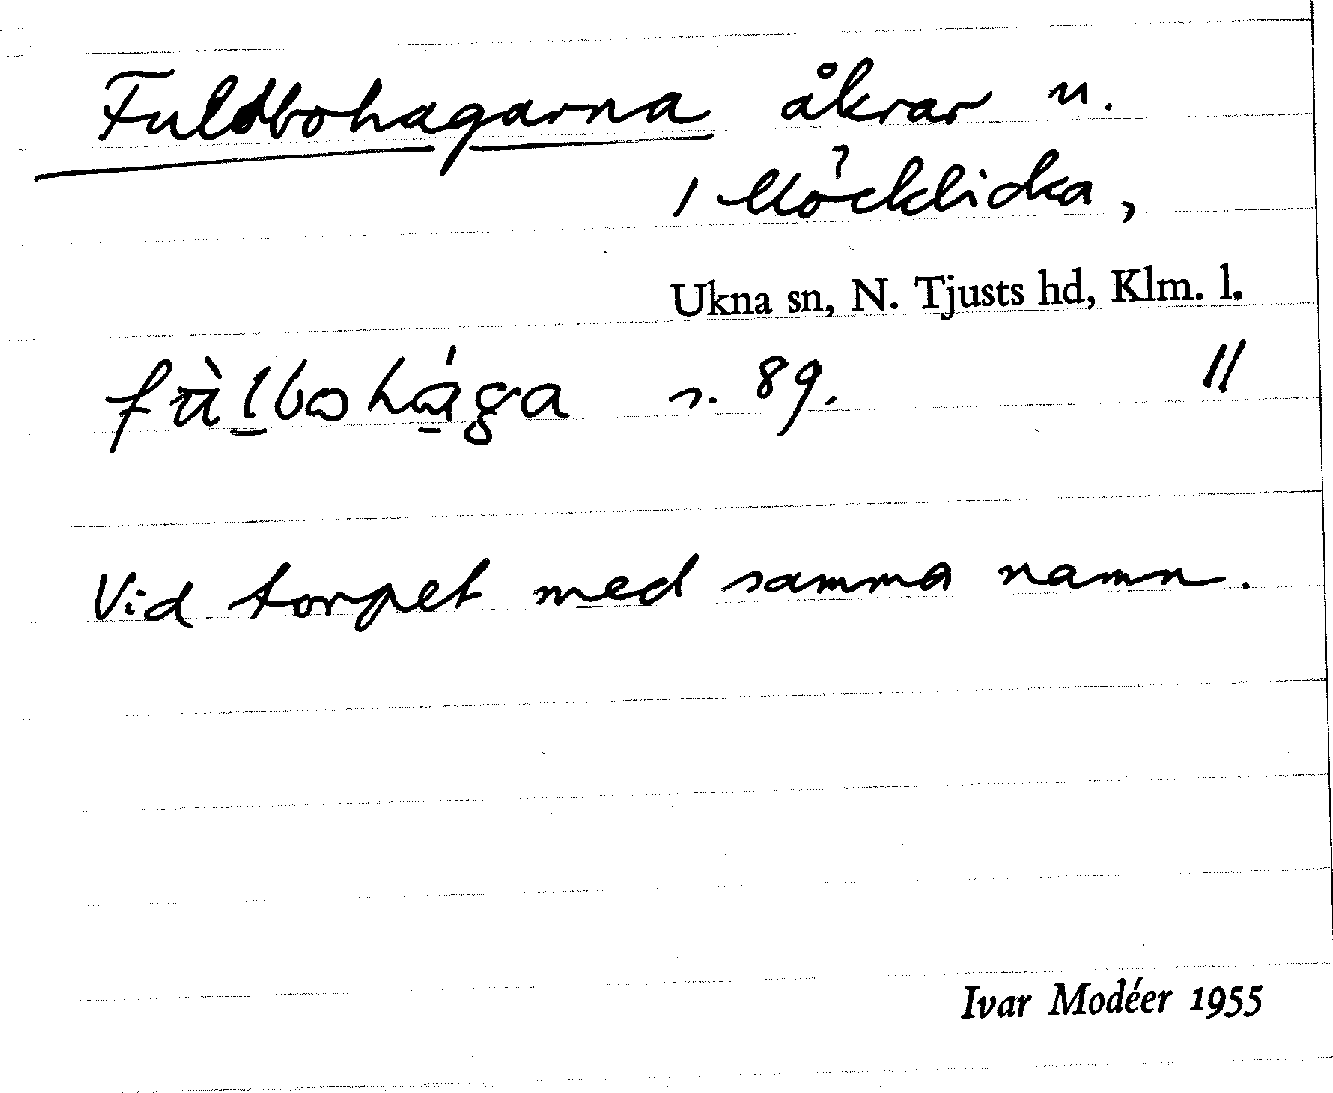 Fuldbohagarna åkrar u.
1 Möcklicka,
Ukna sn, N. Tjusts hd, Klm. l.
fùlbohága s. 89. //
Vid torpet med samma namn.
Ivar Modéer 1955